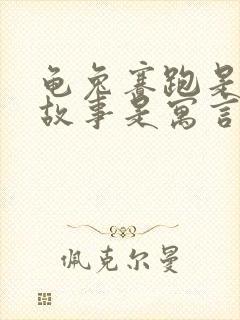 龟兔赛跑是
故事是寓言
佩克尔曼